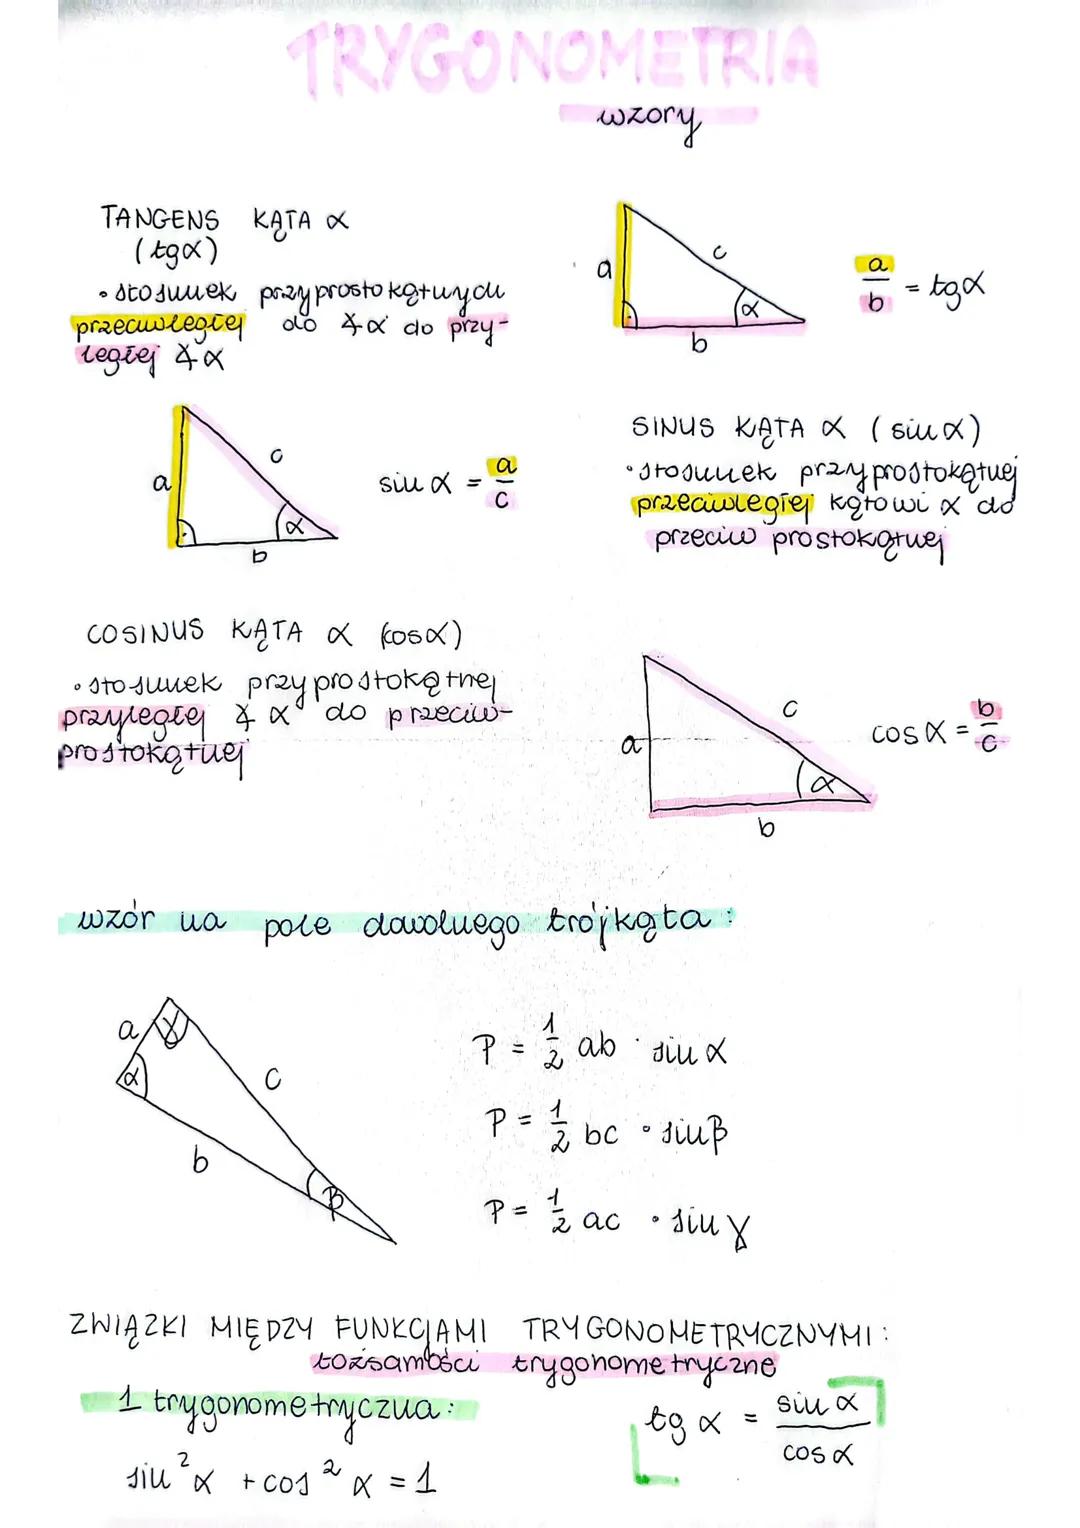 TRYGONOMETRIA
wzory
TANGENS KĄTA α
(tgα)
• stosunek przyprostokątnych
przeciwległej do ∢α do przy-
ległej ∢α
a
c
α
b
a/b = tgα
a
c
α
b
sin α = a/c
SINUS KĄTA α (sinα)
• stosunek przyprostokątnej
przeciwległej kątowi α do
przeciw prostokątnej
COSINUS KĄTA α (cosα)
• stosunek przyprostokątnej
przyległej ∢ α do przeciw-
prostokątnej
a
c
α
b
cos α = b/c
wzór na pole dowolnego trójkąta:
a
γ
α
c
b
β
P = 1/2 ab · sin α
P = 1/2 bc · sinβ
P = 1/2 ac · sin γ
ZWIĄZKI MIĘDZY FUNKCJAMI TRYGONOMETRYCZNYMI:
tożsamości trygonometryczne
1 trygonometryczna:
sin²α + cos²α = 1
tg α = sin α / cos α